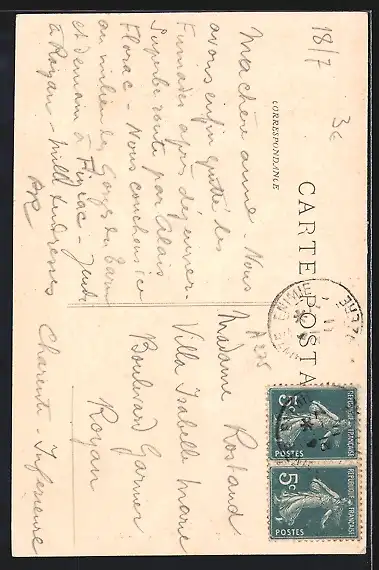 18/7
3€
CARTE POSTA
CORRESPONDANCE
Ma chère amie - Nous
avons enfin quitté les
Fumades après déjeuner -
Superbe route par Alais
Florac - Nous couchons ici
au milieu des Gorges du Tarn
et demain à Figeac - Jeudi
à Royan - mille tendresses
A275
Madame Rostand
Villa Isabelle Marie
Boulevard Garnier
Royan
Charente - Inférieure
5c
REPUBLIQUE FRANÇAISE
POSTES
5c
REPUBLIQUE FRANÇAISE
POSTES